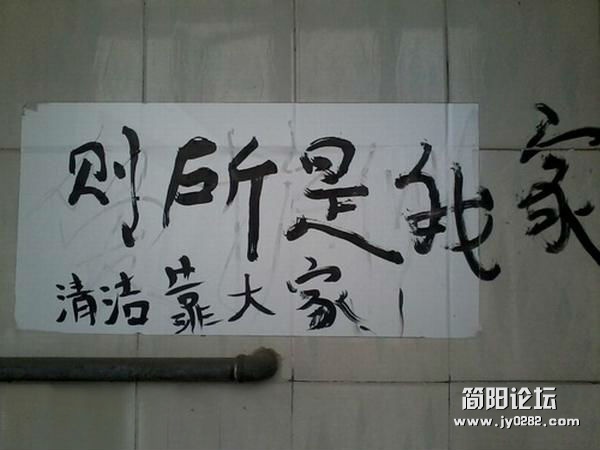 则所是我家
清洁靠大家！
简阳论坛
www.jy0282.com